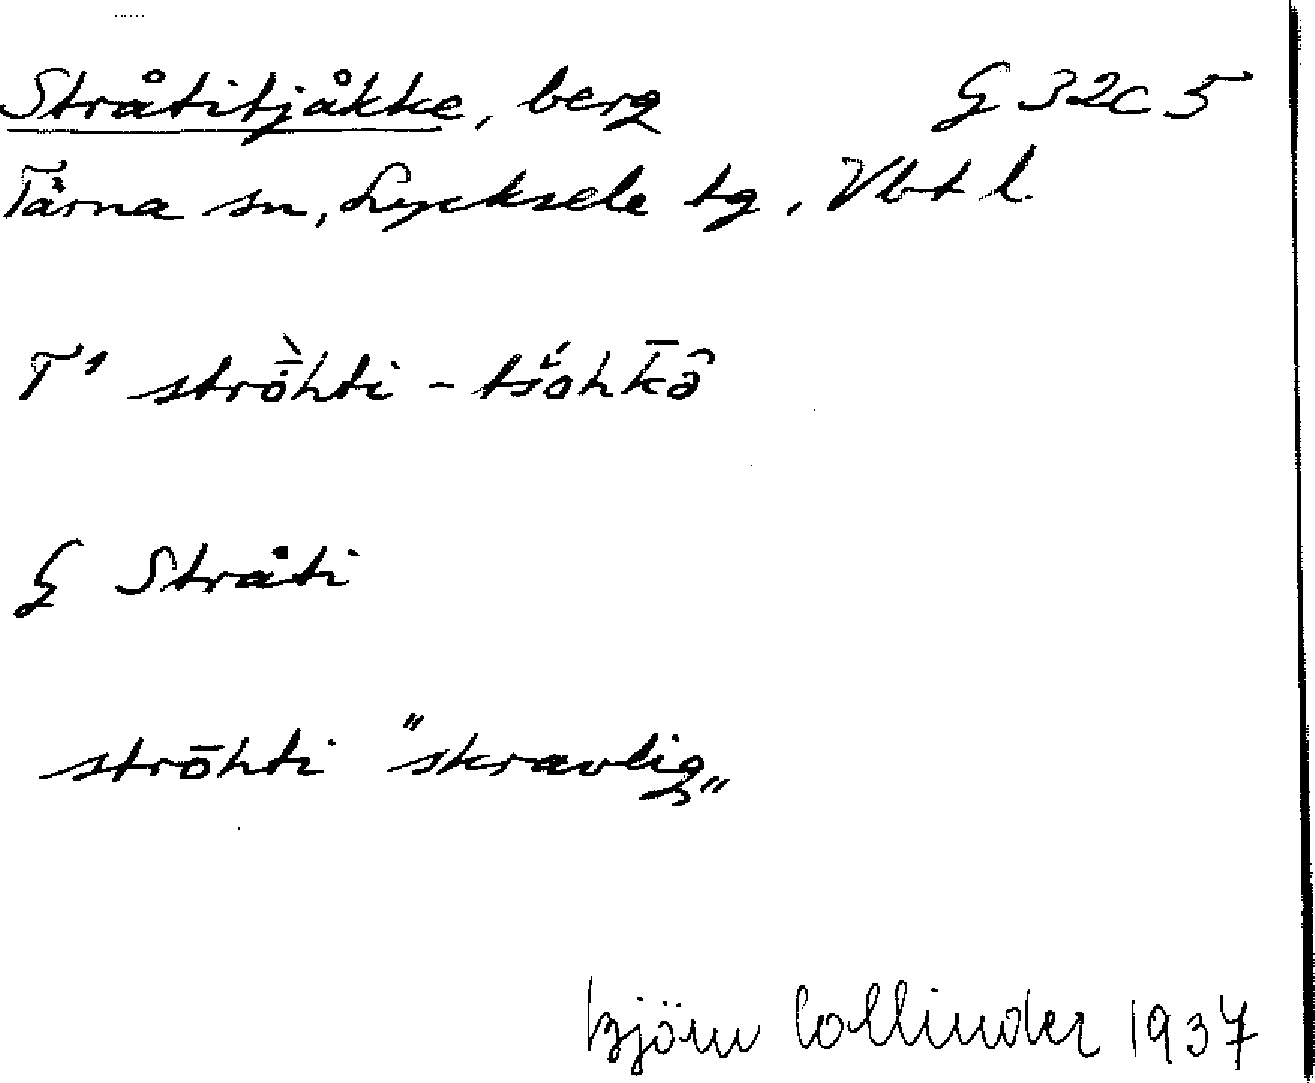 Stråtitjåkke, berg G 32c 5
Tärna sn, Lycksele tg, Vbt l
T¹ strö̀hti - tśåhk̄â
G Stråti
strōhti "skravlig"
Björn Collinder 1937